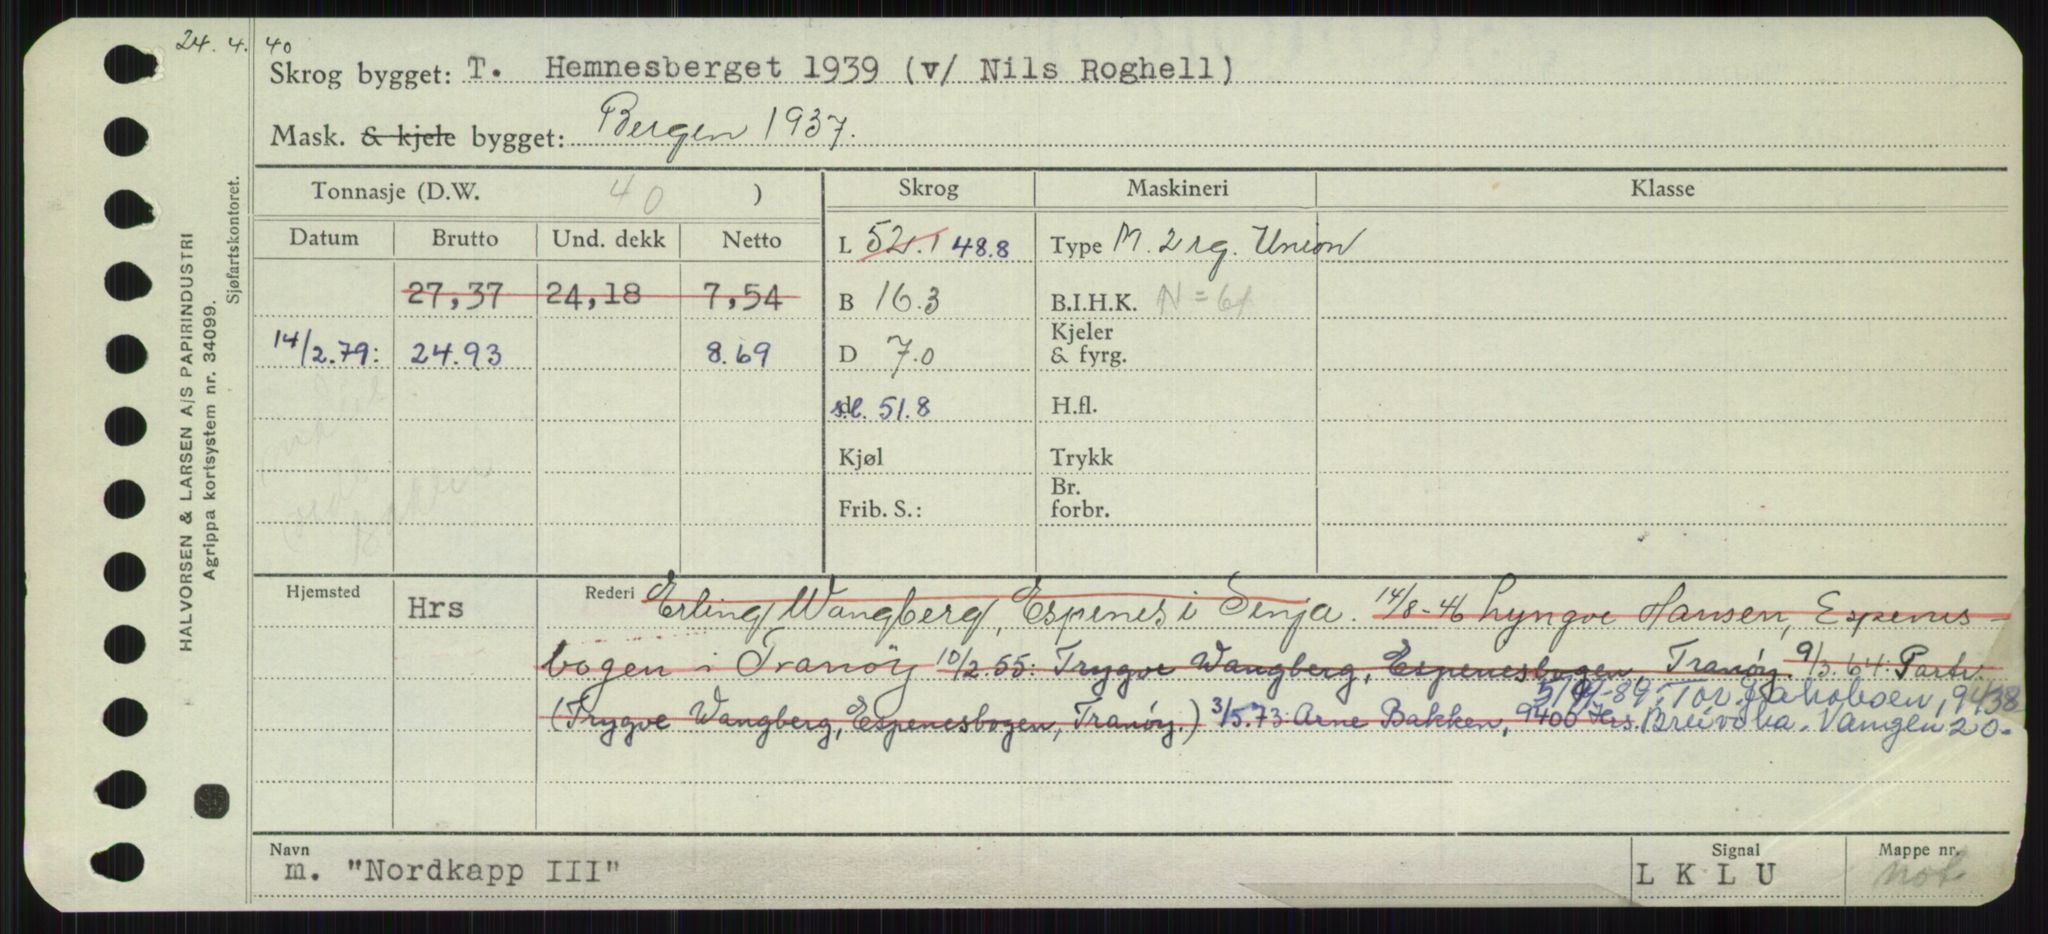 24. 4. 40
Skrog bygget: T. Hemnesberget 1939 (v/ Nils Roghell)
Mask. & kjele bygget: Bergen 1937.
HALVORSEN & LARSEN A/S PAPIRINDUSTRI
Agrippa kortsystem nr. 34099.
Sjøfartskontoret.
Tonnasje (D.W. 40 ) Skrog Maskineri Klasse
Datum Brutto Und. dekk Netto L 52.1 48.8 Type M. 2 rg. Union
27,37 24,18 7,54 B 16.3 B.I.H.K. N =
14/2.79: 24.93 8.69 D 7.0 Kjeler & fyrg.
s.l. 51.8 H.fl.
Kjøl Trykk
Frib. S.: Br. forbr.
Hjemsted Hrs Rederi Erling Wangberg, Espenes i Senja. 14/8-46 Lyngve Hansen, Espenes-
bogen i Tranöy 10/2.55: Trygve Wangberg, Espenesbogen, Tranöy. 9/3.64: Partr.
(Trygve Wangberg, Espenesbogen, Tranöy.) 3/5.73: Arne Bakken, 9400 Hrs.
-89: Tor Jakobsen, 9438
Breivoba. Vangen 20.
Navn m. "Nordkapp III" Signal L K L U Mappe nr. not